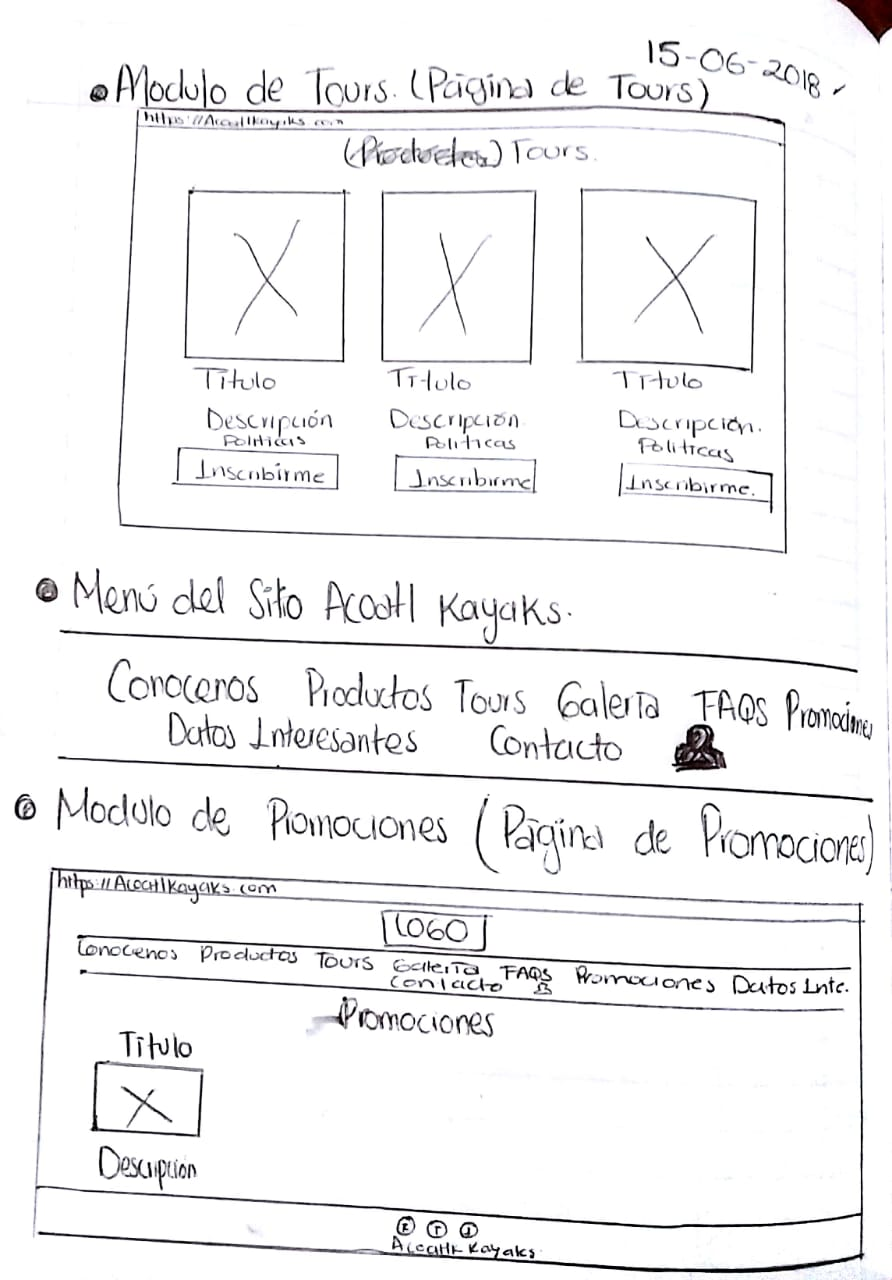 15-06-2018
Modulo de Tours. (Página de Tours)
https://Acoatlkayaks.com
(Productos) Tours.
Titulo Titulo Titulo
Descripción Descripción. Descripción.
Politicas Politicas Politicas
Inscribirme Inscribirme Inscribirme.
Menú del Sitio Acoatl Kayaks.
Conocenos Productos Tours Galería FAQS Promociones
Datos Interesantes Contacto
Modulo de Promociones (Página de Promociones)
https://AcoatlKayaks.com
LOGO
Conocenos Productos Tours Galería FAQS Promociones Datos Inte.
Contacto
Promociones
Título
Descripción
Acoatl Kayaks